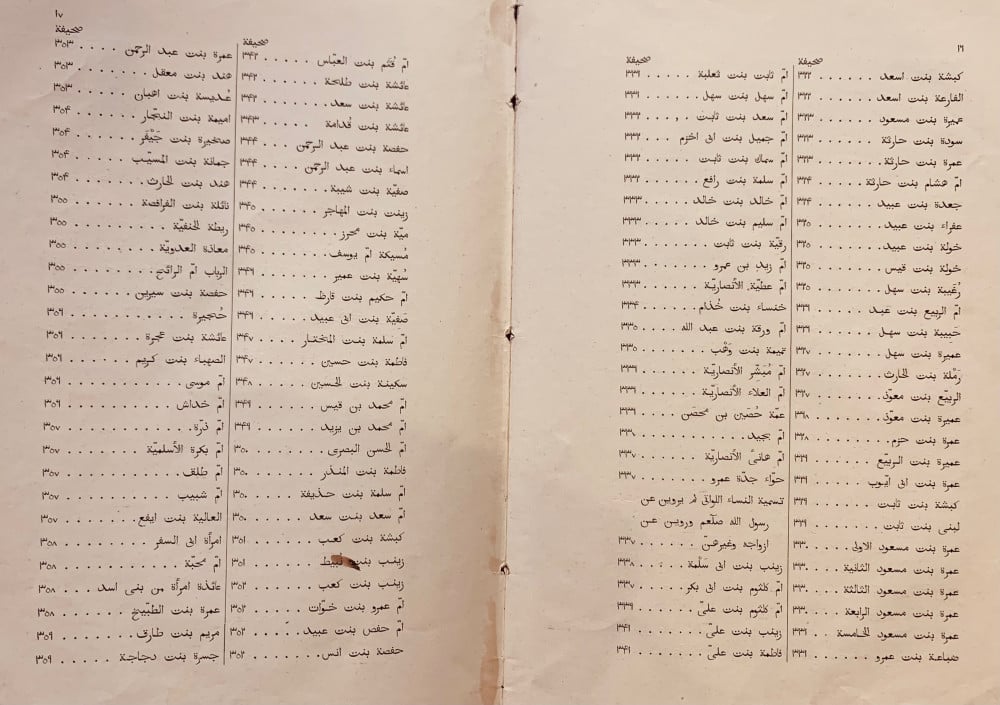 ١٦
صحيفة
كبشة بنت اسعد . . . . . . ٣٢٢
الفارعة بنت اسعد . . . . . . ٣٢٢
عميرة بنت مسعود . . . . . . ٣٢٣
سودة بنت حارثة . . . . . . ٣٢٣
عمرة بنت حارثة . . . . . . ٣٢٣
امّ هشام بنت حارثة . . . . ٣٢٤
جعدة بنت عبيد . . . . . . ٣٢٤
عفراء بنت عبيد . . . . . . ٣٢٥
خولة بنت عبيد . . . . . . ٣٢٥
خولة بنت قيس . . . . . . ٣٢٥
رُغَيبة بنت سهل . . . . . . ٣٢٥
امّ الربيع بنت عبد . . . . . ٣٢٦
حَبيبة بنت سهل . . . . . . ٣٢٦
عميرة بنت سهل . . . . . . ٣٢٧
رَمْلة بنت الحارث . . . . . . ٣٢٧
الربيّع بنت معوّذ . . . . . . ٣٢٧
عميرة بنت معوّذ . . . . . . ٣٢٨
عمرة بنت حزم . . . . . . . ٣٢٨
عميرة بنت الربيّع . . . . . . ٣٢٩
عمرة بنت ابى ايّوب . . . . . ٣٢٩
كبشة بنت ثابت . . . . . . ٣٢٩
لبنى بنت ثابت . . . . . . . ٣٢٩
عمرة بنت مسعود الاولى . . . ٣٣٠
عمرة بنت مسعود الثانية . . . ٣٣٠
عمرة بنت مسعود الثالثة . . . ٣٣٠
عمرة بنت مسعود الرابعة . . . ٣٣٠
عمرة بنت مسعود الخامسة . . ٣٣١
ضباعة بنت عمرو . . . . . . ٣٣١
صحيفة
امّ ثابت بنت ثعلبة . . . . . ٣٣١
امّ سهل بنت سهل . . . . . ٣٣١
امّ سعد بنت ثابت . . . . . ٣٣٢
امّ جميل بنت ابى اخزم . . . ٣٣٢
امّ سماك بنت ثابت . . . . ٣٣٢
امّ سلمة بنت رافع . . . . . ٣٣٢
امّ خالد بنت خالد . . . . . ٣٣٣
امّ سليم بنت خالد . . . . . ٣٣٣
رقيّة بنت ثابت . . . . . . ٣٣٣
امّ زيد بن عمرو . . . . . . ٣٣٣
امّ عطيّة الأنصاريّة . . . . . ٣٣٣
خنساء بنت خُذام . . . . . ٣٣٤
امّ ورقة بنت عبد الله . . . . ٣٣٥
تميمة بنت وَهْب . . . . . . ٣٣٥
امّ مُبَشِّر الأنصاريّة . . . . . ٣٣٦
امّ العلاء الأنصاريّة . . . . . ٣٣٦
عمّة حُصَين بن محصَن . . . ٣٣٦
امّ بجيد . . . . . . . . . . ٣٣٧
امّ هانئ الأنصاريّة . . . . . ٣٣٧
حوّاء جدّة عمرو . . . . . . ٣٣٧
تسمية النساء اللواتى لم يروين عن
رسول الله صلّعم وروين عن
ازواجه وغيرهنّ . . . . . . ٣٣٧
زينب بنت ابى سَلَمة . . . . ٣٣٨
امّ كلثوم بنت ابى بكر . . . . ٣٣٨
امّ كلثوم بنت علىّ . . . . . ٣٣٩
زينب بنت علىّ . . . . . . ٣٤١
فاطمة بنت علىّ . . . . . . ٣٤١
١٧
صحيفة
امّ قُثَم بنت العبّاس . . . . . . ٣٤٢
عائشة بنت طلحة . . . . . . ٣٤٢
عائشة بنت سعد . . . . . . . ٣٤٢
عائشة بنت قُدامة . . . . . . ٣٤٣
حفصة بنت عبد الرحمن . . . . ٣٤٤
اسماء بنت عبد الرحمن . . . . ٣٤٤
صفيّة بنت شيبة . . . . . . . ٣٤٤
زينب بنت المهاجر . . . . . . ٣٤٥
ميّة بنت محرز . . . . . . . . ٣٤٥
مُسَيكة امّ يوسف . . . . . . ٣٤٥
سُهَيّة بنت عمير . . . . . . . ٣٤٦
امّ حكيم بنت قارظ . . . . . ٣٤٦
صَفيّة بنت ابى عبيد . . . . . ٣٤٦
امّ سلمة بنت المختار . . . . . ٣٤٧
فاطمة بنت حسين . . . . . . ٣٤٧
سكينة بنت الحسين . . . . . . ٣٤٨
امّ محمد بن قيس . . . . . . ٣٤٩
امّ محمد بن يزيد . . . . . . ٣٤٩
امّ الحسن البصرى . . . . . . ٣٥٠
فاطمة بنت المنذر . . . . . . ٣٥٠
امّ سلمة بنت حذيفة . . . . . ٣٥٠
امّ سعد بنت سعد . . . . . . ٣٥٠
كبشة بنت كعب . . . . . . . ٣٥١
زينب بنت نبيط . . . . . . . ٣٥١
زينب بنت كعب . . . . . . . ٣٥٢
امّ عمرو بنت خوّات . . . . . ٣٥٢
امّ حفص بنت عبيد . . . . . ٣٥٢
حفصة بنت انس . . . . . . . ٣٥٢
صحيفة
عمرة بنت عبد الرحمن . . . . ٣٥٣
هند بنت معقل . . . . . . . ٣٥٣
عُدَيسة بنت اهبان . . . . . . ٣٥٣
اميمة بنت النجّار . . . . . . ٣٥٤
صخيرة بنت جَيْفَر . . . . . . ٣٥٤
جمانة بنت المسيّب . . . . . . ٣٥٤
هند بنت الحارث . . . . . . . ٣٥٤
نائلة بنت الفرافصة . . . . . . ٣٥٥
ريطة الحنفيّة . . . . . . . . ٣٥٥
معاذة العدويّة . . . . . . . . ٣٥٥
الرباب امّ الرائح . . . . . . . ٣٥٥
حفصة بنت سيرين . . . . . . ٣٥٥
حُجيرة . . . . . . . . . . . ٣٥٦
عائشة بنت عجرة . . . . . . ٣٥٦
الصهباء بنت كريم . . . . . . ٣٥٦
امّ موسى . . . . . . . . . . ٣٥٦
امّ خداش . . . . . . . . . . ٣٥٦
امّ ذرّة . . . . . . . . . . . ٣٥٧
امّ بكرة الأسلميّة . . . . . . . ٣٥٧
امّ طلق . . . . . . . . . . . ٣٥٧
امّ شبيب . . . . . . . . . . ٣٥٧
العالية بنت ايفع . . . . . . . ٣٥٧
امرأة ابى السفر . . . . . . . ٣٥٨
امّ محبّة . . . . . . . . . . . ٣٥٨
عائذة امرأة من بنى اسد . . . ٣٥٨
عمرة بنت الطَّبيخ . . . . . . ٣٥٨
مريم بنت طارق . . . . . . . ٣٥٩
جسرة بنت دجاجة . . . . . . ٣٥٩